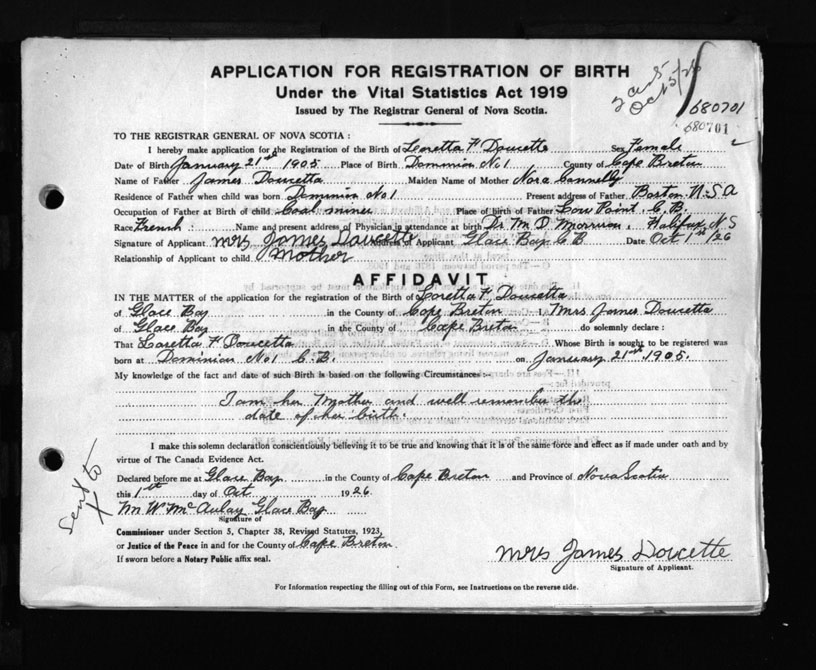 APPLICATION FOR REGISTRATION OF BIRTH
Under the Vital Statistics Act 1919
Issued by The Registrar General of Nova Scotia.
Oct 5/26
680701
680701
TO THE REGISTRAR GENERAL OF NOVA SCOTIA :
I hereby make application for the Registration of the Birth of Loretta F. Doucette Sex Female
Date of Birth January 21st 1905 Place of Birth Dominion No 1 County of Cape Breton
Name of Father James Doucette Maiden Name of Mother Nora Connelly
Residence of Father when child was born Dominion No 1 Present address of Father Boston U.S.A
Occupation of Father at Birth of child Coal miner Place of birth of Father Low Point C.B.
Race French Name and present address of Physician in attendance at birth Dr M. D. Morrison, Halifax N.S
Signature of Applicant Mrs James Doucette Address of Applicant Glace Bay C B Date Oct 1st/26
Relationship of Applicant to child Mother
AFFIDAVIT
IN THE MATTER of the application for the registration of the Birth of Loretta F. Doucette
of Glace Bay in the County of Cape Breton I, Mrs James Doucette
of Glace Bay in the County of Cape Breton do solemnly declare :
That Loretta F Doucette Whose Birth is sought to be registered was
born at Dominion No 1 C.B. on January 21st 1905.
My knowledge of the fact and date of such Birth is based on the following Circumstances :-
I am her Mother and well remember the
date of her birth.
I make this solemn declaration conscientiously believing it to be true and knowing that it is of the same force and effect as if made under oath and by
virtue of The Canada Evidence Act.
Declared before me at Glace Bay in the County of Cape Breton and Province of Nova Scotia
this 1st day of Oct 1926
M W McAulay Glace Bay
Signature of
Commissioner under Section 3, Chapter 38, Revised Statutes, 1923,
or Justice of the Peace in and for the County of Cape Breton.
If sworn before a Notary Public affix seal.
Sent to
Mrs James Doucette
Signature of Applicant.
For Information respecting the filling out of this Form, see Instructions on the reverse side.